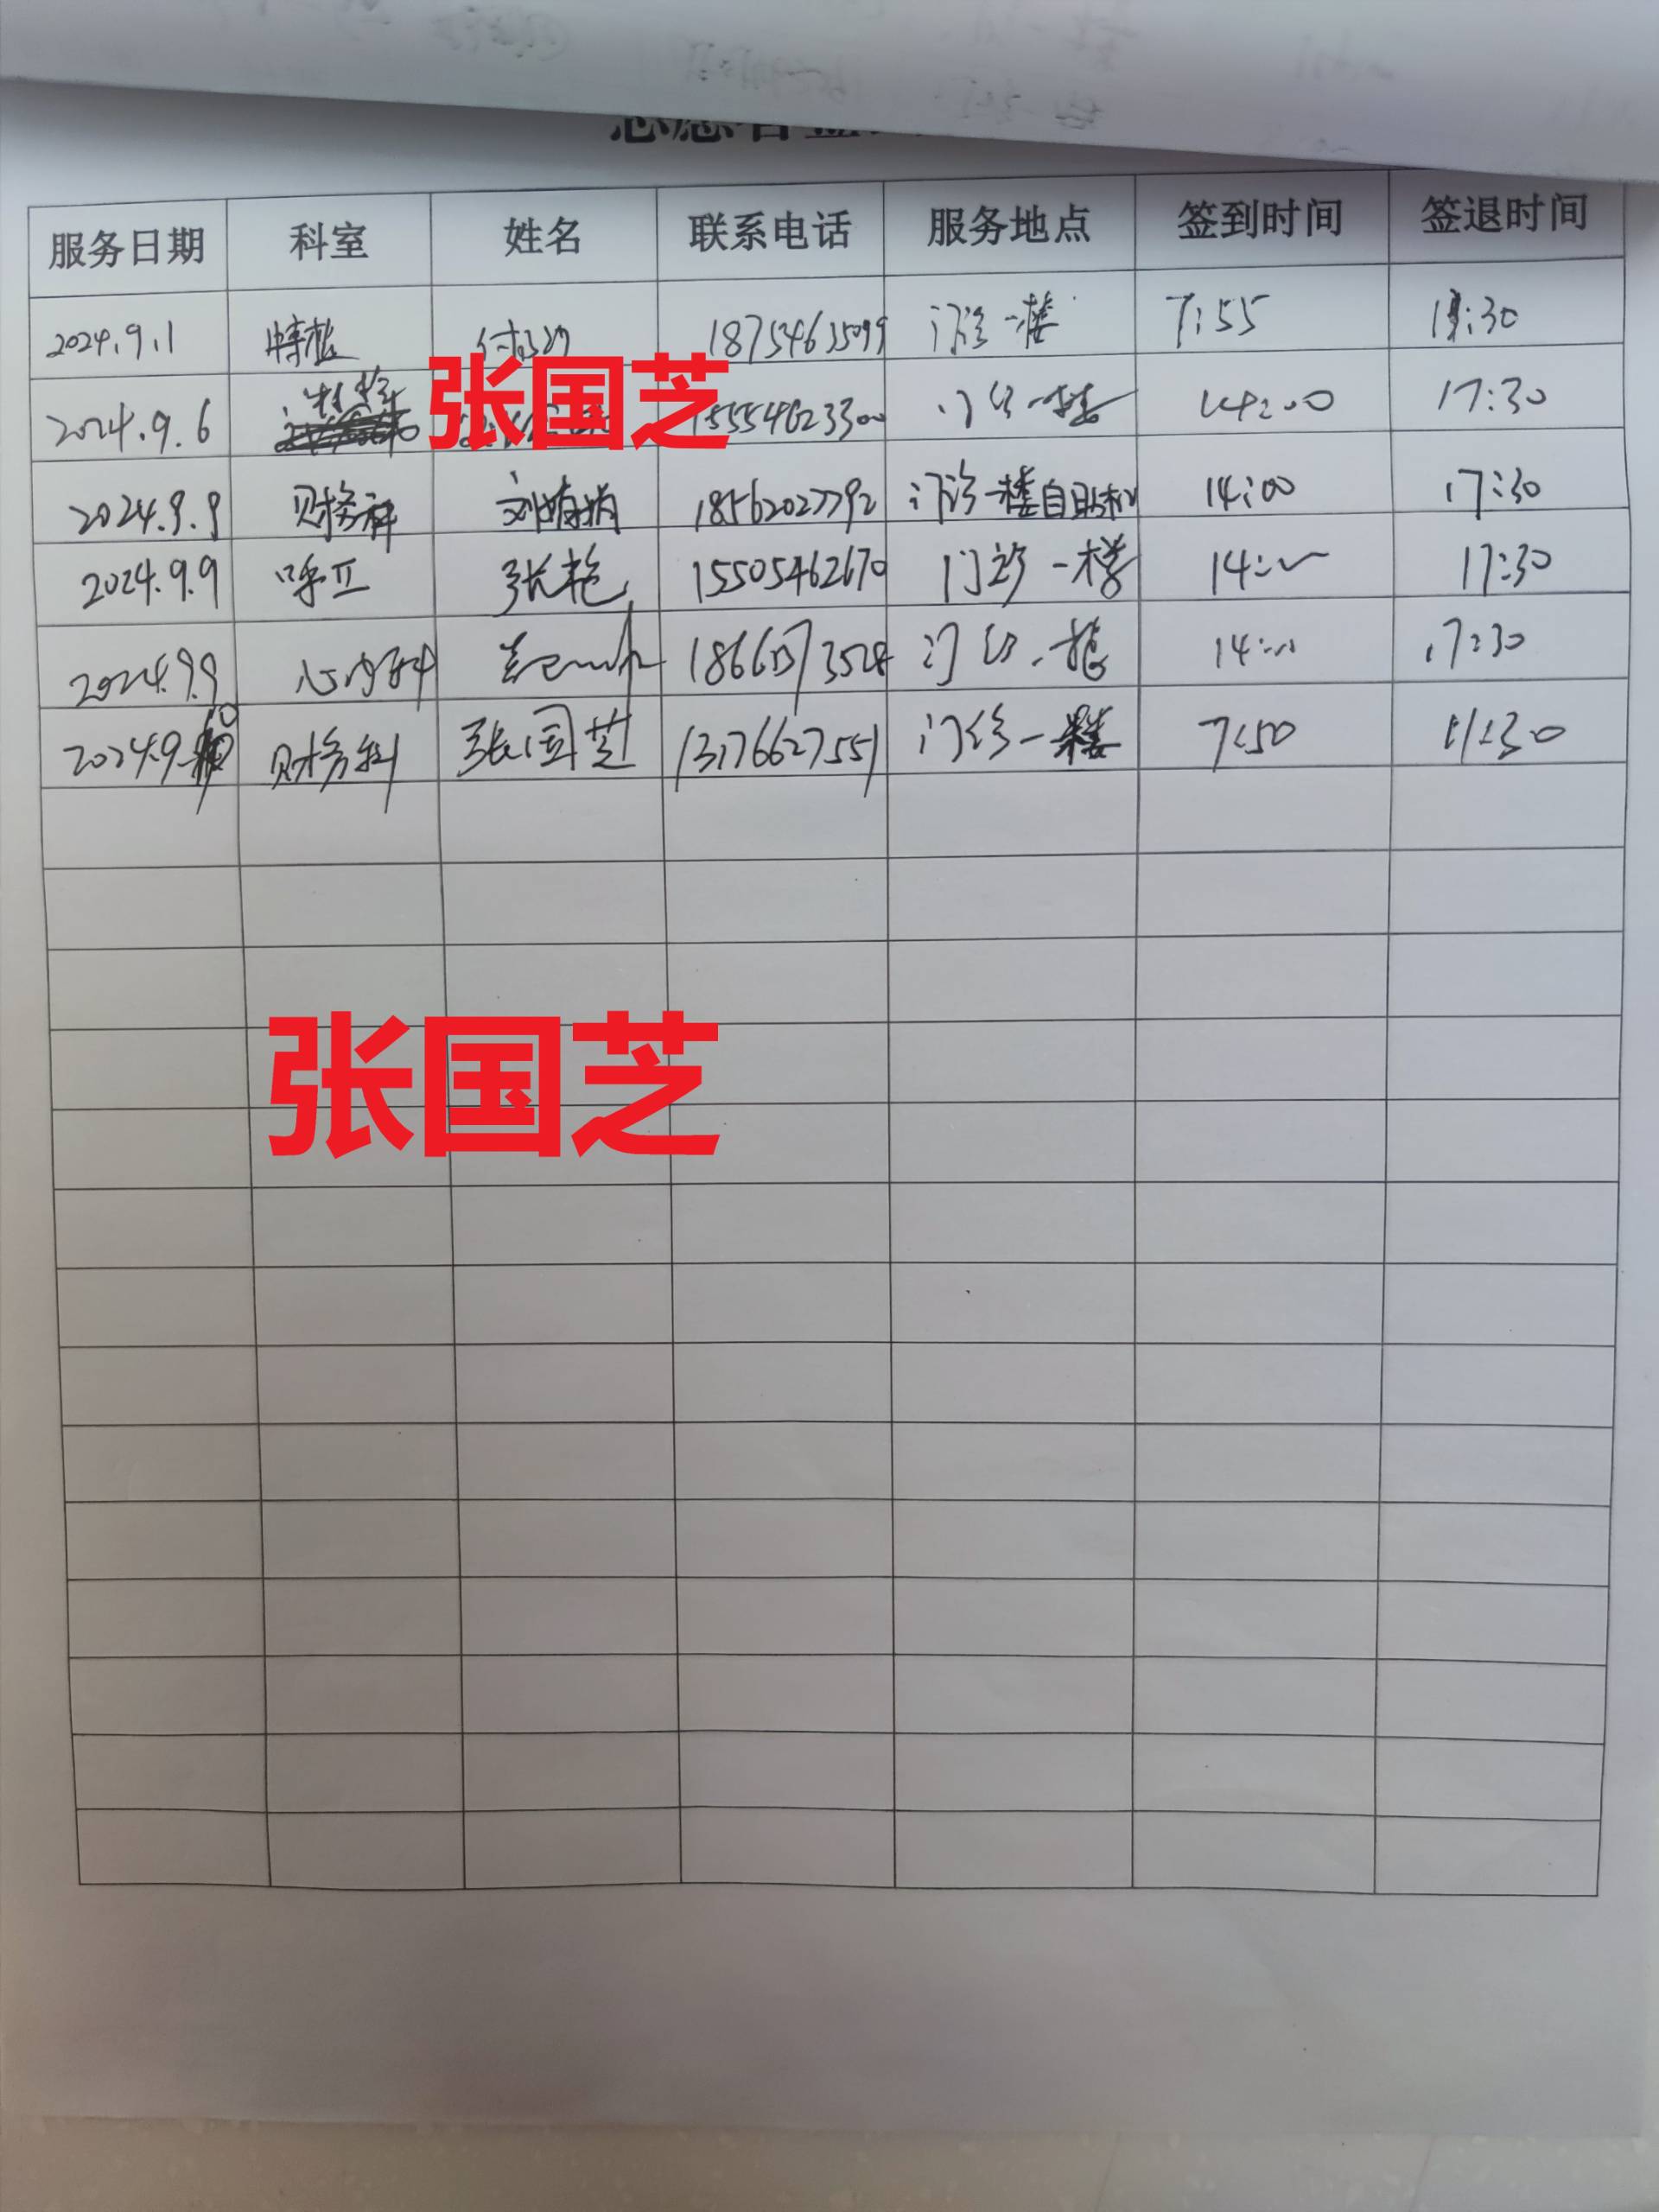 服务日期 科室 姓名 联系电话 服务地点 签到时间 签退时间
2024.9.1 特检 18754635099 门诊一楼 7:55 11:30
2024.9.6 张国芝 15554623300 门诊一楼 14:00 17:30
2024.9.9 财务科 刘娟娟 18562027792 门诊一楼自助机 14:00 17:30
2024.9.9 呼Ⅱ 张艳 15505462670 门诊一楼 14:00 17:30
2024.9.9 心内科 门诊一楼 14:00 17:30
2024.9.10 财务科 张国芝 13176627551 门诊一楼 7:50 11:30
张国芝